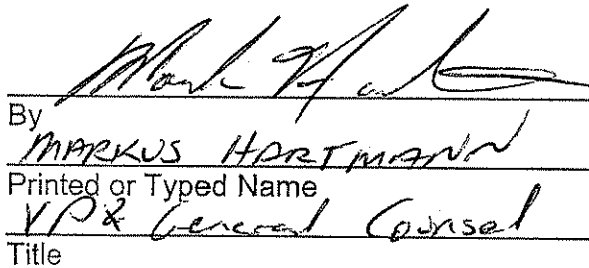 By
MARKUS HARTMANN
Printed or Typed Name
VP & General Counsel
Title